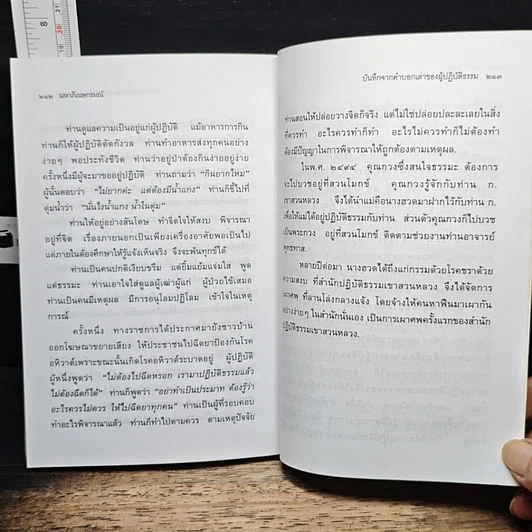 ๒๑๒ มหาภิเนษกรมณ์
ท่านดูแลความเป็นอยู่แก่ผู้ปฏิบัติ แม้อาหารการกิน
ท่านก็ให้ผู้ปฏิบัติตัดกังวล ท่านทำอาหารส่งทุกคนอย่าง
ง่ายๆ พอประทังชีวิต ท่านว่าอยู่ป่าต้องกินง่ายอยู่ง่าย
ครั้งหนึ่งมีผู้จะมาขออยู่ปฏิบัติ ท่านถามว่า "กินยากไหม"
ผู้นั้นตอบว่า "ไม่ยากค่ะ แต่ต้องมีน้ำแกง" ท่านก็ชี้ไปที่
ตุ่มน้ำว่า "นั่นไงน้ำแกง น้ำในตุ่ม"
ท่านให้อยู่อย่างสันโดษ ทำจิตใจให้สงบ พิจารณา
อยู่ที่จิต เรื่องภายนอกเป็นเพียงเครื่องอาศัยพอเป็นไป
แต่ภายในต้องศึกษาให้รู้แจ้งเห็นจริง จึงจะพ้นทุกข์ได้
ท่านเป็นคนปกติเรียบขรึม แต่ยิ้มแย้มแจ่มใส พูด
แต่ธรรมะ ท่านเอาใจใส่ดูแลผู้เฒ่าผู้แก่ ผู้ป่วยไข้เสมอ
ท่านเป็นคนมีเหตุผล มีการอนุโลมปฏิโลม เข้าใจในเหตุ
การณ์
ครั้งหนึ่ง ทางราชการได้ประกาศมายังชาวบ้าน
ออกโฆษณาขยายเสียง ให้ประชาชนไปฉีดยาป้องกันโรค
อหิวาต์เพราะขณะนั้นเกิดโรคอหิวาต์ระบาดอยู่ ผู้ปฏิบัติ
ผู้หนึ่งพูดว่า "ไม่ต้องไปฉีดหรอก เรามาปฏิบัติธรรมแล้ว
ไม่ต้องฉีดก็ได้" ท่านก็พูดว่า "อย่าทำเป็นประมาท ต้องรู้ว่า
อะไรควรไม่ควร ให้ไปฉีดยาทุกคน" ท่านเป็นผู้ที่รอบคอบ
ทำอะไรพิจารณาแล้ว ท่านก็ทำไปตามควร ตามเหตุปัจจัย
บันทึกจากคำบอกเล่าของผู้ปฏิบัติธรรม ๒๑๓
ท่านสอนให้ปล่อยวางจิตก็จริง แต่ไม่ใช่ปล่อยปละละเลยในสิ่ง
ที่ควรทำ อะไรควรทำก็ทำ อะไรไม่ควรทำก็ไม่ต้องทำ
ต้องมีปัญญาในการพิจารณาให้ถูกต้องตามเหตุผล
ในพ.ศ. ๒๔๙๔ คุณกวงซึ่งสนใจธรรมะ ต้องการ
จะไปบวชอยู่ที่สวนโมกข์ คุณกวงรู้จักกับท่าน ก.
เขาสวนหลวง จึงได้นำแม่คือนางฮวดมาฝากไว้กับท่าน ก.
เพื่อให้แม่ได้อยู่ปฏิบัติธรรมกับท่าน ส่วนตัวคุณกวงก็ไปบวช
เป็นพระกวง อยู่ที่สวนโมกข์ ติดตามช่วยงานท่านอาจารย์
พุทธทาส
หลายปีต่อมา นางฮวดได้ถึงแก่กรรมด้วยโรคชราด้วย
ความสงบ ที่สำนักปฏิบัติธรรมเขาสวนหลวง จึงได้จัดการ
เผาศพ ที่ลานโล่งกลางแจ้ง โดยจ้างให้คนหาฟืนมาเผากัน
อย่างง่ายๆ ในสำนักนั่นเอง เป็นการเผาศพครั้งแรกของสำนัก
ปฏิบัติธรรมเขาสวนหลวง